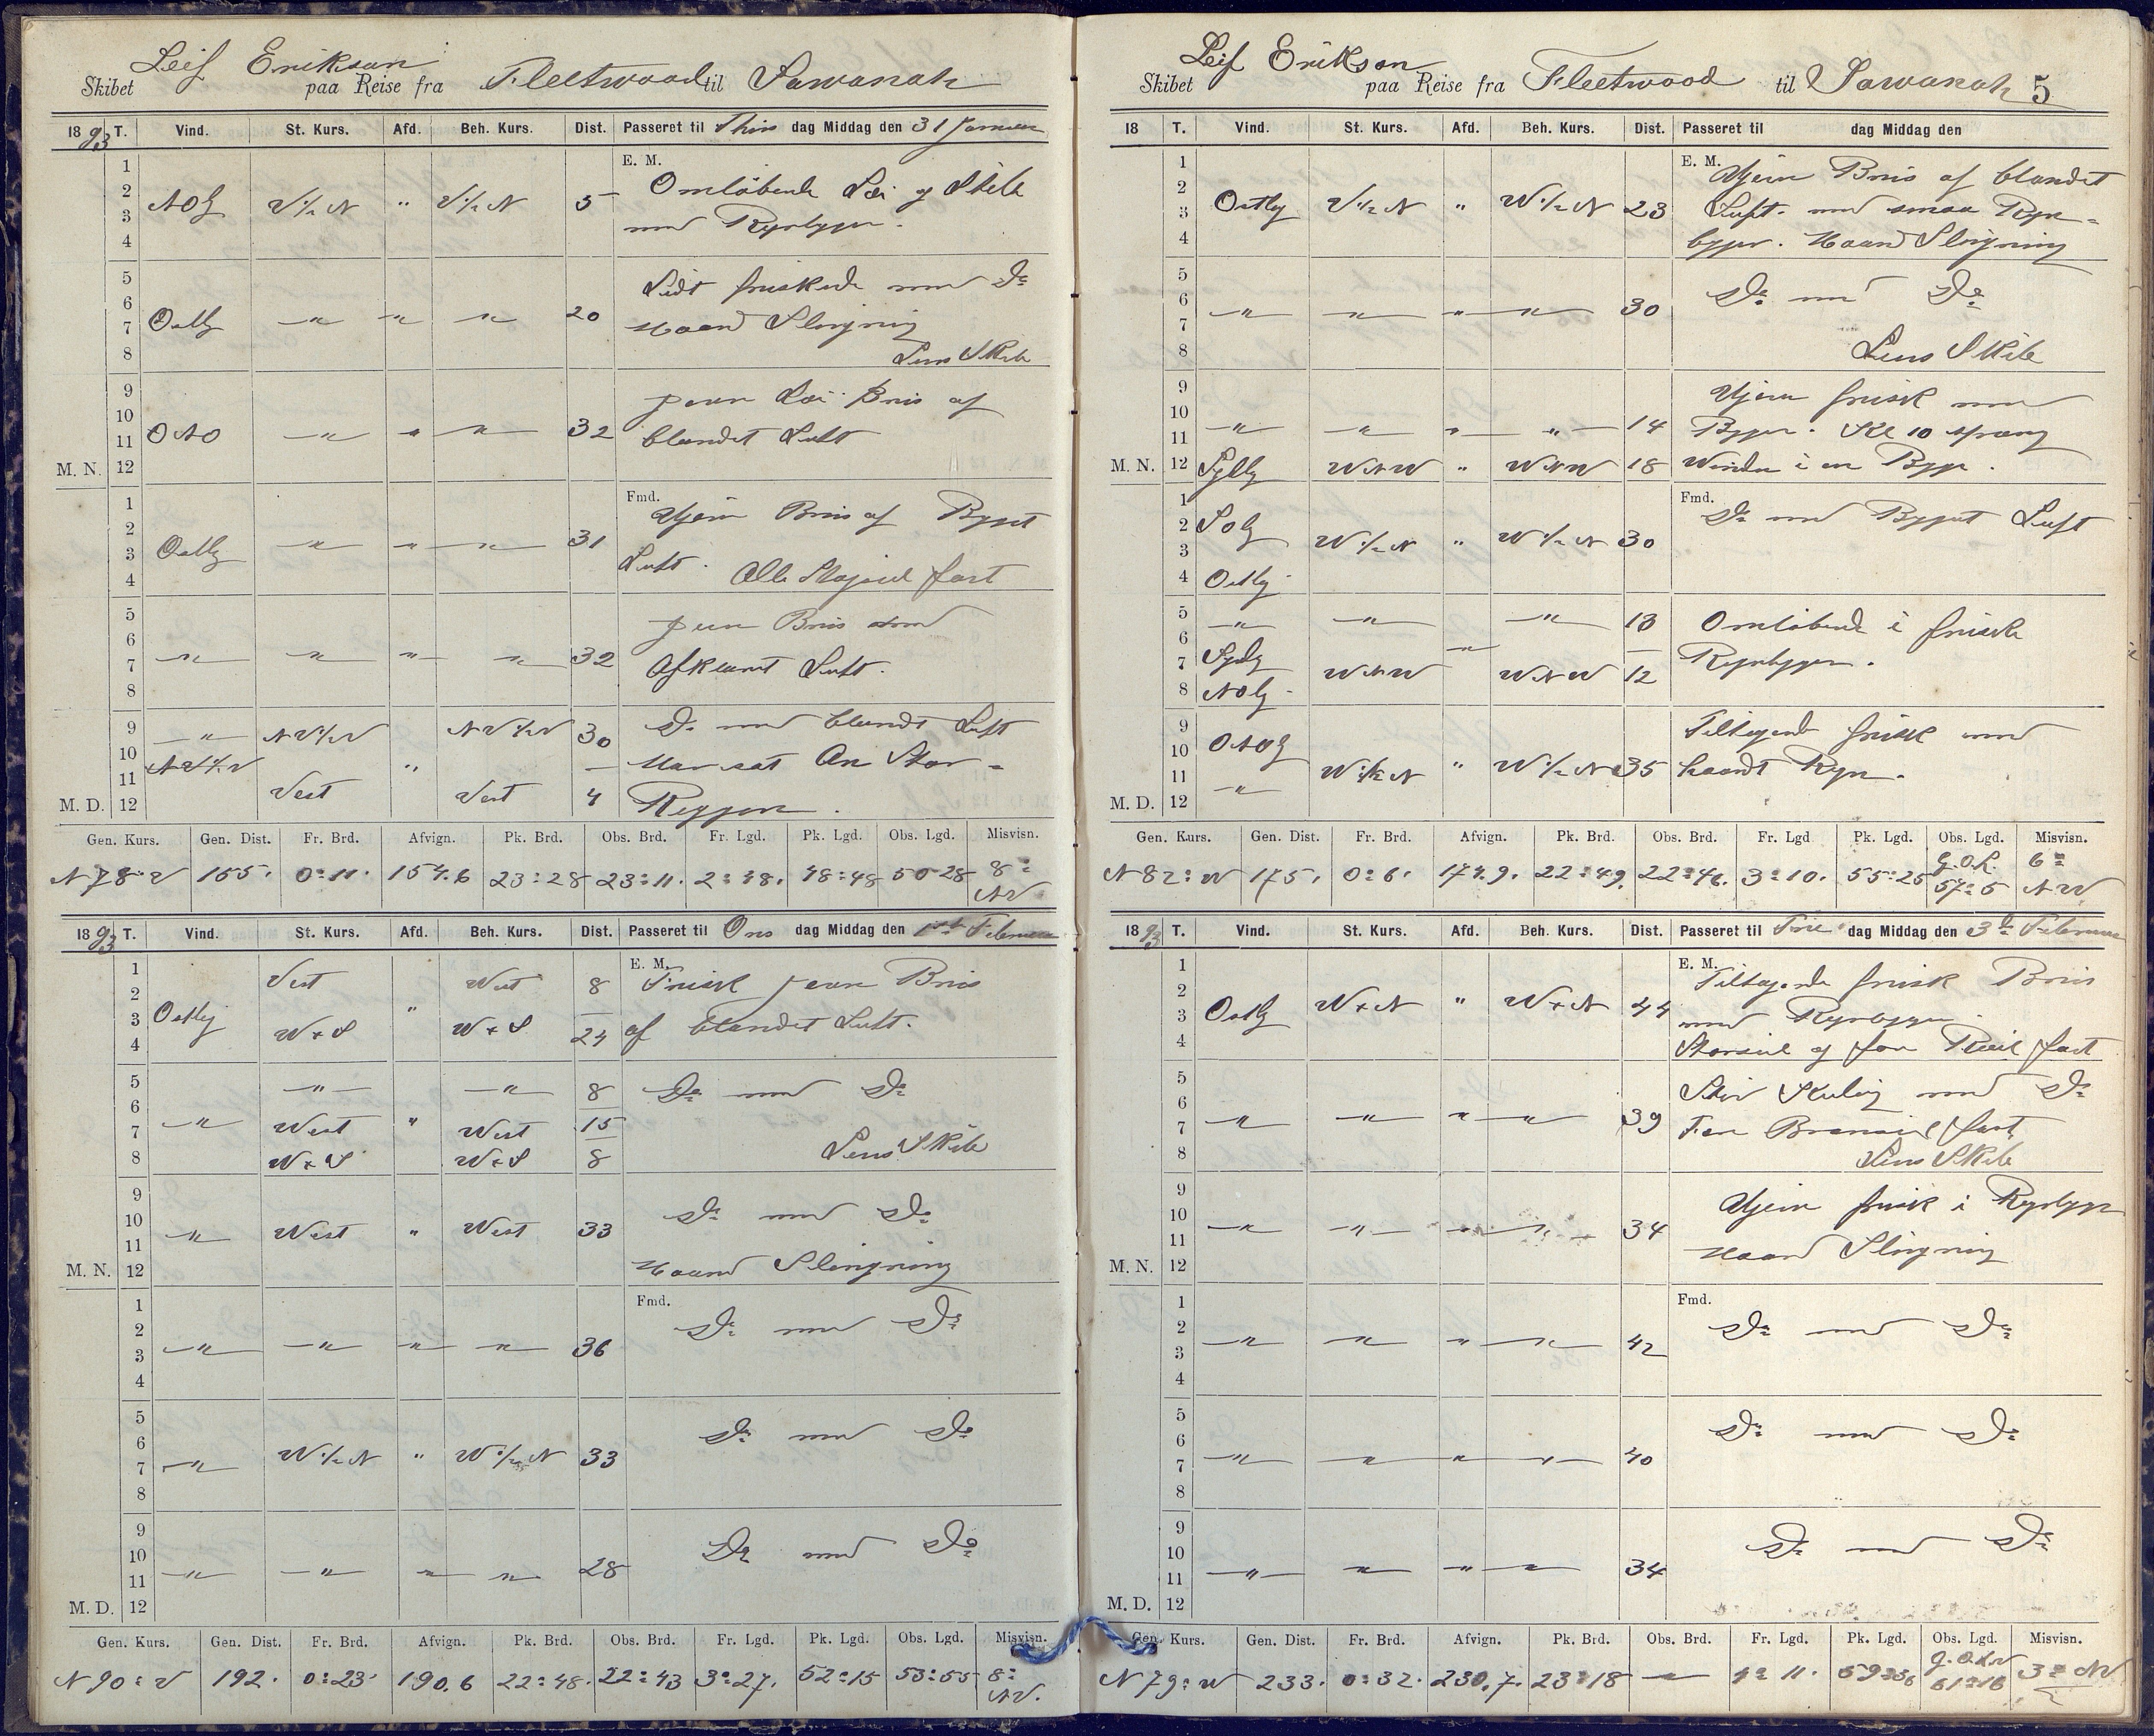 Leif Erikson
Skibet paa Reise fra Fleetwood til Sawanah
18 93 T. Vind. St. Kurs. Afd. Beh. Kurs. Dist. Passeret til Thirs dag Middag den 31 Januar
E. M.
1 2 3 4 NOlg V½N " V½N 5 Omløbende Læ og Stille
med Regnbyger.
5 6 7 8 Ostlg —"— —"— —"— 20 Lidt friskende med Do
Haand Slingning
Lens Skib
9 10 11 M. N. 12 ONO —"— " —"— 32 jevn Bris af
blandet Luft
Fmd.
1 2 3 4 Ostlg —"— —"— —"— 31 Ujevn Bris af Byget
Luft. Alle Stagseil fast
5 6 7 8 —"— —"— —"— —"— 32 jevn Bris
Afklaret Luft.
9 10 11 M. D. 12 —"— NV½V NV½V 30 Do med blandt Luft
"
Vest Vest 4
Gen. Kurs. Gen. Dist. Fr. Brd. Afvign. Pk. Brd. Obs. Brd. Fr. Lgd. Pk. Lgd. Obs. Lgd. Misvisn.
N 78° V 155. 0°11. 154.6 23°28 23°11. 2°48. 48°48 50°28 8° NV
18 93 T. Vind. St. Kurs. Afd. Beh. Kurs. Dist. Passeret til Ons dag Middag den 1st Februar
E. M.
1 2 3 4 Ostlig Vest " West 8 Frisk jevn Bris
W+S W+S 24 af blandet Luft.
5 6 7 8 —"— —"— 8 Do med Do
—"— West " West 15
W+S W+S 8 Lens Skib
9 10 11 M. N. 12 —"— West " West 33 Do med Do
Haand Slingning
Fmd.
1 2 3 4 —"— —"— —"— —"— 36 Do med Do
5 6 7 8 —"— W½N " W½N 33 Do med Do
9 10 11 M. D. 12 —"— —"— —"— —"— 28 Do med Do
Gen. Kurs. Gen. Dist. Fr. Brd. Afvign. Pk. Brd. Obs. Brd. Fr. Lgd. Pk. Lgd. Obs. Lgd. Misvisn.
N 90° V 192. 0°23' 190.6 22°48. 22°43 3°27. 52°15 53°55 8° NV.
Leif Erikson
Skibet paa Reise fra Fleetwood til Sawanah 5
18 T. Vind. St. Kurs. Afd. Beh. Kurs. Dist. Passeret til dag Middag den
E. M.
1 2 3 4 Ostlg V½N " W½N 23 Ujevn Bris af blandet
Luft. med smaa Regn-
byger. Haand Slingning
5 6 7 8 —"— —"— —"— —"— 30 Do med Do
Lens Skib
9 10 11 —"— —"— —"— —"— 14 Ujevn frisk med
Byger. Kl 10 sprang
M. N. 12 Sydlg WNW " WNW 18 Vinden i en Byge.
Fmd.
1 2 3 4 SOlg W½N " W½N 30 Do med Byget Luft
Ostlg
5 6 7 8 —"— —"— —"— 13 Omløbende i friske
Sydlg WNW —"— WNW 12 Regnbyger.
NOlg
9 10 11 M. D. 12 ONOlg W½N " W½N 35 Tiltagende frisk med
—"— haardt Regn.
Gen. Kurs. Gen. Dist. Fr. Brd. Afvign. Pk. Brd. Obs. Brd. Fr. Lgd Pk. Lgd. Obs. Lgd. Misvisn.
N 82° W 175. 0°6. 174.9. 22°49. 22°46. 3°10. 55°25 G.O.L. 57°5 6° NW
18 93 T. Vind. St. Kurs. Afd. Beh. Kurs. Dist. Passeret til Fre dag Middag den 3de Februar
E. M.
1 2 3 4 Ostlg W+N " W+N 44 Tiltagende frisk Bris
med Regnbyger.
Storseil og fast
5 6 7 8 —"— —"— —"— —"— 39 Stiv Kuling med Do
For Bramseil fast
Lens Skib
9 10 11 M. N. 12 —"— —"— —"— —"— 34 Ujevn frisk i Regnbyger
Haand Slingning
Fmd.
1 2 3 4 —"— —"— —"— —"— 42 Do med Do
5 6 7 8 —"— —"— —"— —"— 40 Do med Do
9 10 11 M. D. 12 —"— —"— —"— —"— 34 Do med Do
Gen. Kurs. Gen. Dist. Fr. Brd. Afvign. Pk. Brd. Obs. Brd. Fr. Lgd. Pk. Lgd. Obs. Lgd. Misvisn.
N 79° W 233. 0°32. 230.7. 23°18 — 4° 11. 59°36 61°16 3° NV